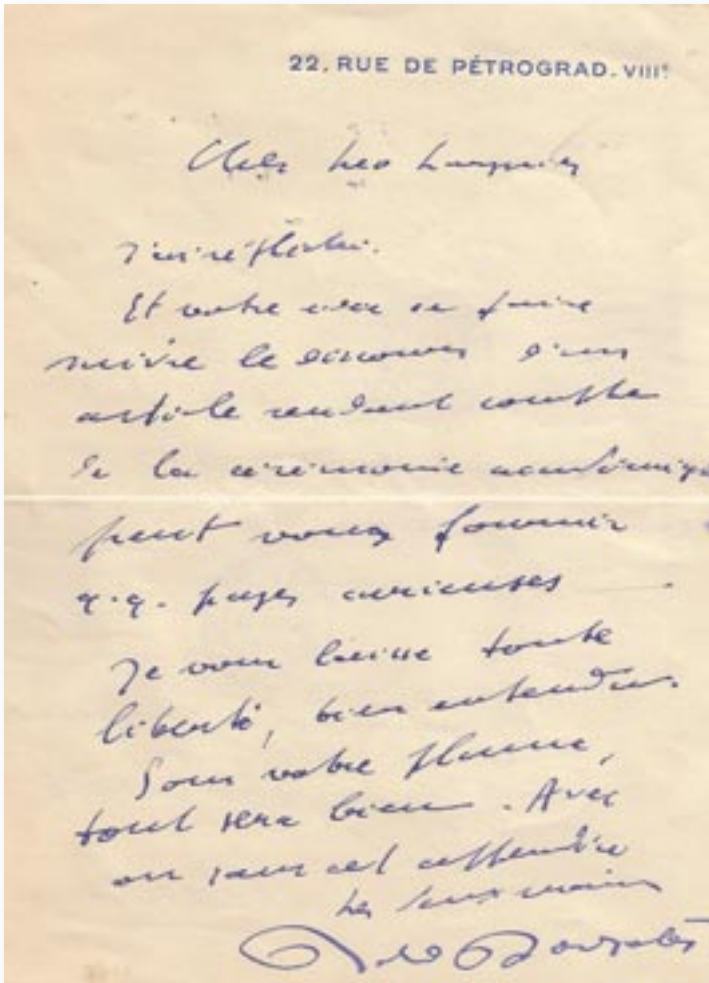 22, RUE DE PÉTROGRAD. VIIIᵉ
Cher Leo Larguier
J'ai réfléchi.
Et votre idée de faire
suivre le discours d'un
article rendant compte
de la cérémonie académique
peut vous fournir
q.q. pages curieuses
Je vous laisse toute
liberté, bien entendu.
Sous votre plume,
tout sera bien. Avec
ou sans cet appendice
les deux mains